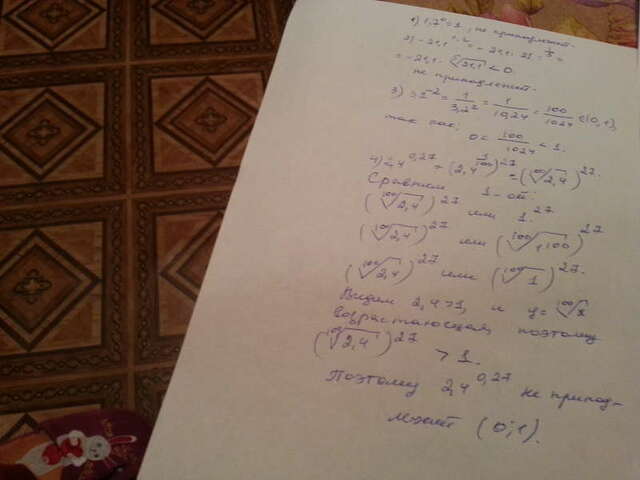 1) 1,7⁰ = 1, не принадлежит.
2) −21,1^1,2 = −21,1 · 21^1/5 =
= −21,1 · ⁵√21,1 < 0.
не принадлежит.
3) 3,2^−2 = 1/3,2² = 1/10,24 = 100/1024 ∈ (0,1),
так как: 0 < 100/1024 < 1.
4) 2,4^0,27 = (2,4^1/100)^27 = (¹⁰⁰√2,4)^27.
Сравним 1-ой
(¹⁰⁰√2,4)^27 или 1^27
(¹⁰⁰√2,4)^27 или (¹⁰⁰√1^100)^27
(¹⁰⁰√2,4)^27 или (¹⁰⁰√1)^27.
Видим 2,4 > 1, и y = ¹⁰⁰√x
возрастающая, поэтому
(¹⁰⁰√2,4)^27 > 1.
Поэтому 2,4^0,27 не принад-
лежит (0;1).